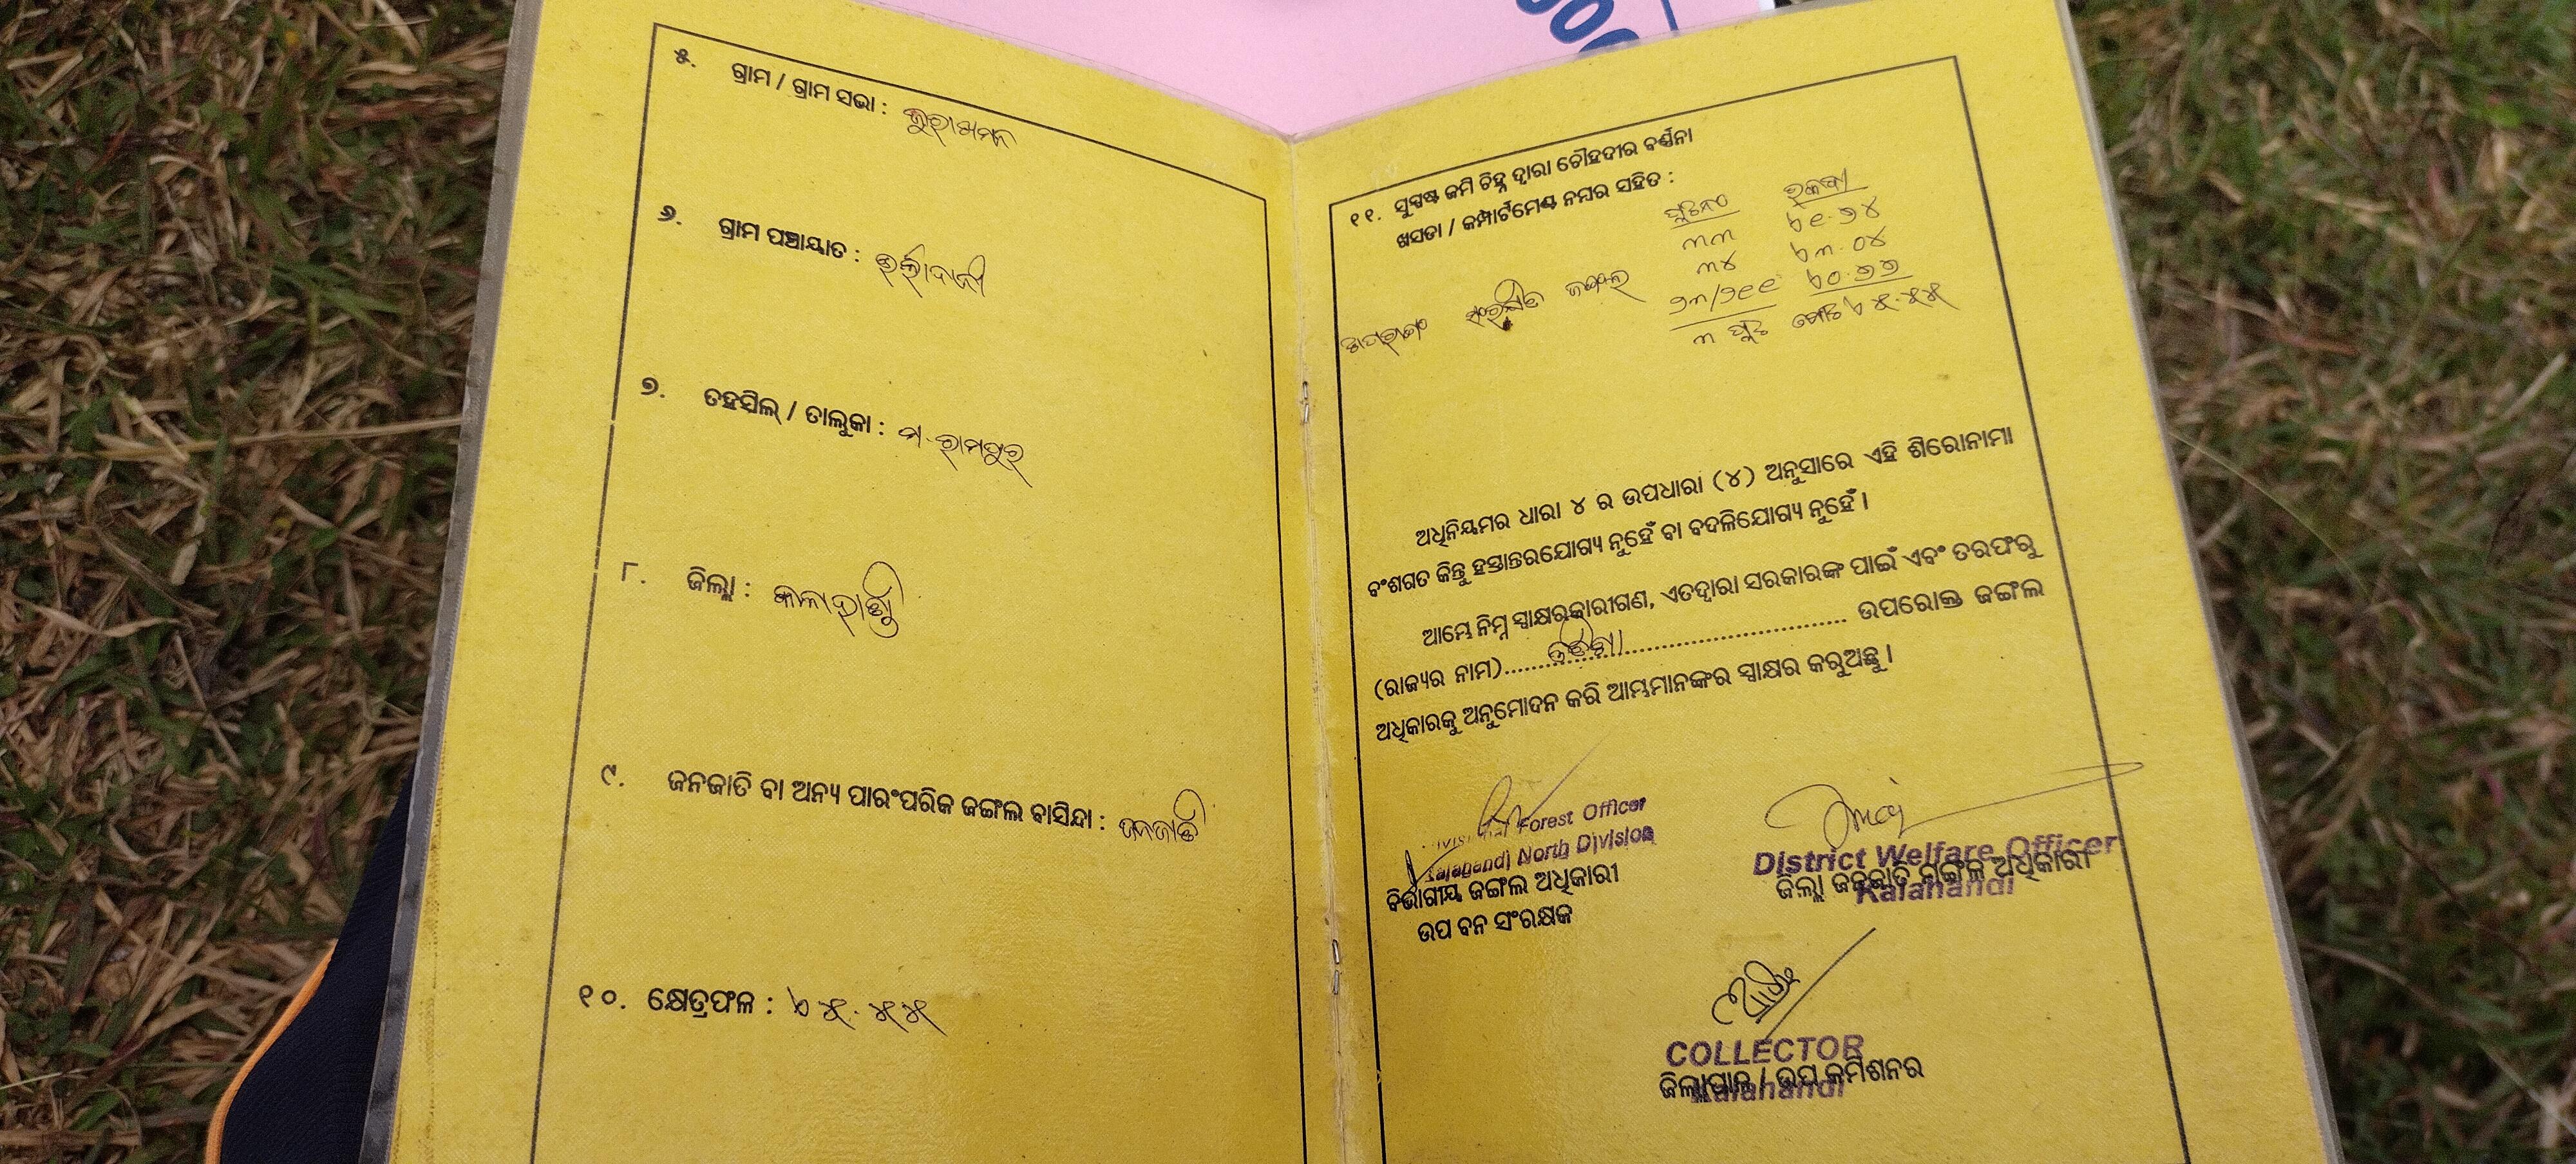 ୫. ଗ୍ରାମ / ଗ୍ରାମ ସଭା :
୬. ଗ୍ରାମ ପଞ୍ଚାୟାତ :
୭. ତହସିଲ୍ / ତାଲୁକା : ମ.ରାମପୁର
୮. ଜିଲ୍ଲା : କଳାହାଣ୍ଡି
୯. ଜନଜାତି ବା ଅନ୍ୟ ପାରଂପରିକ ଜଙ୍ଗଲ ବାସିନ୍ଦା : ଜନଜାତି
୧୦. କ୍ଷେତ୍ରଫଳ :
୧୧. ସୁସ୍ପଷ୍ଟ ଜମି ଚିହ୍ନ ଦ୍ୱାରା ଚୌହଦୀର ବର୍ଣ୍ଣନା
ଖସଡା / କମ୍ପାର୍ଟମେଣ୍ଟ ନମ୍ବର ସହିତ :
ପ୍ଲଟନଂ ରକବା
୩୩
୩୪
ସଂରକ୍ଷିତ ଜଙ୍ଗଲ
୩ ପ୍ଲଟ
ଅଧିନିୟମର ଧାରା ୪ ର ଉପଧାରା (୪) ଅନୁସାରେ ଏହି ଶିରୋନାମା
ବଂଶଗତ କିନ୍ତୁ ହସ୍ତାନ୍ତରଯୋଗ୍ୟ ନୁହେଁ ବା ବଦଳିଯୋଗ୍ୟ ନୁହେଁ ।
ଆମ୍ଭେ ନିମ୍ନ ସ୍ୱାକ୍ଷରକାରୀଗଣ, ଏତଦ୍ୱାରା ସରକାରଙ୍କ ପାଇଁ ଏବଂ ତରଫରୁ
(ରାଜ୍ୟର ନାମ)........ ଓଡିଶା ........ ଉପରୋକ୍ତ ଜଙ୍ଗଲ
ଅଧିକାରକୁ ଅନୁମୋଦନ କରି ଆମ୍ଭମାନଙ୍କର ସ୍ୱାକ୍ଷର କରୁଅଛୁ ।
Divisional Forest Officer
Kalahandi North Division
ବିଭାଗୀୟ ଜଙ୍ଗଲ ଅଧିକାରୀ
ଉପ ବନ ସଂରକ୍ଷକ
District Welfare Officer
ଜିଲ୍ଲା ଜନଜାତି ମଙ୍ଗଳ ଅଧିକାରୀ
Kalahandi
COLLECTOR
ଜିଲ୍ଲାପାଳ / ଉପ କମିଶନର
Kalahandi